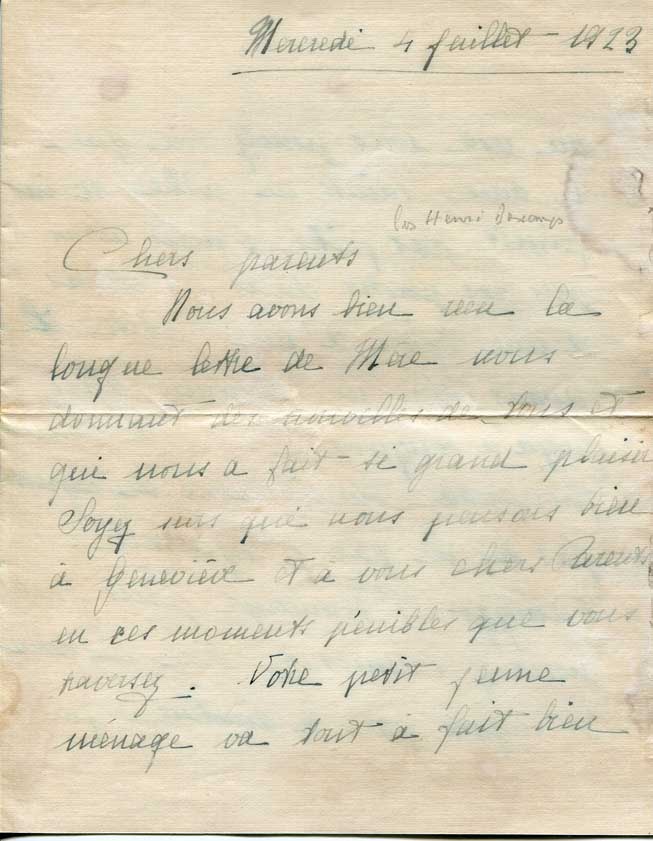 Mercredi 4 Juillet - 1923
Henri
Chers parents
Nous avons bien recu la
longue lettre de Mère nous
donnant des nouvelles de tous et
qui nous a fait si grand plaisir
Soyez surs que nous pensons bien
à Geneviève et à vous chers Parents
en ces moments pénibles que vous
traversez. Votre petit jeune
ménage va tout à fait bien